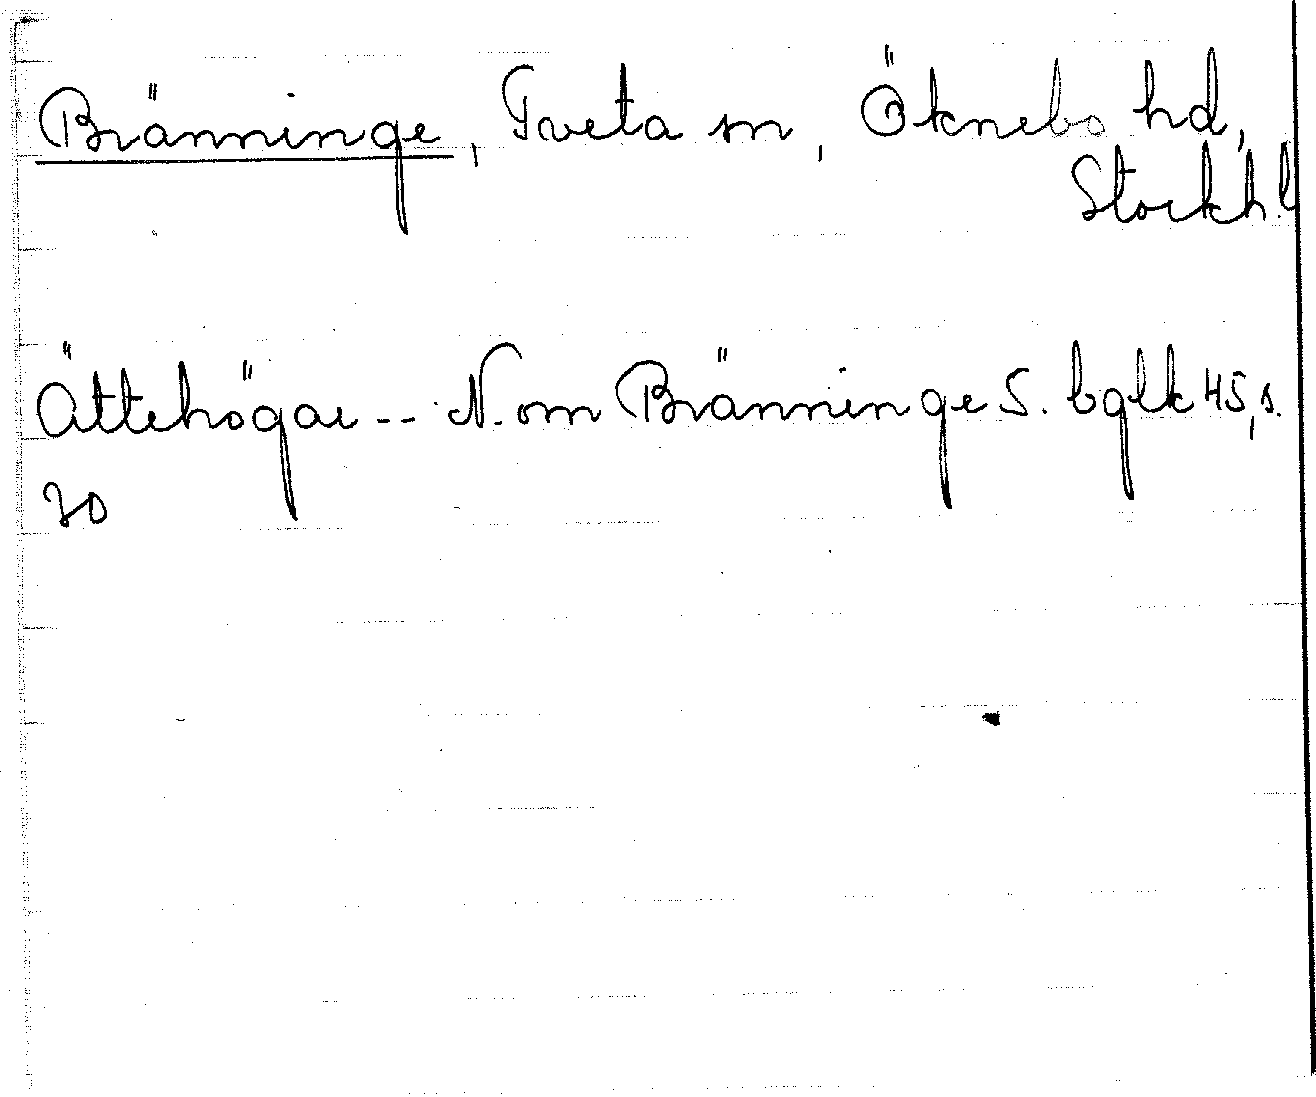 Bränninge, Tveta sn, Öknebo hd,
Stockh. l
Ättehögar -- N. om Bränninge S. bglk 45, s.
20